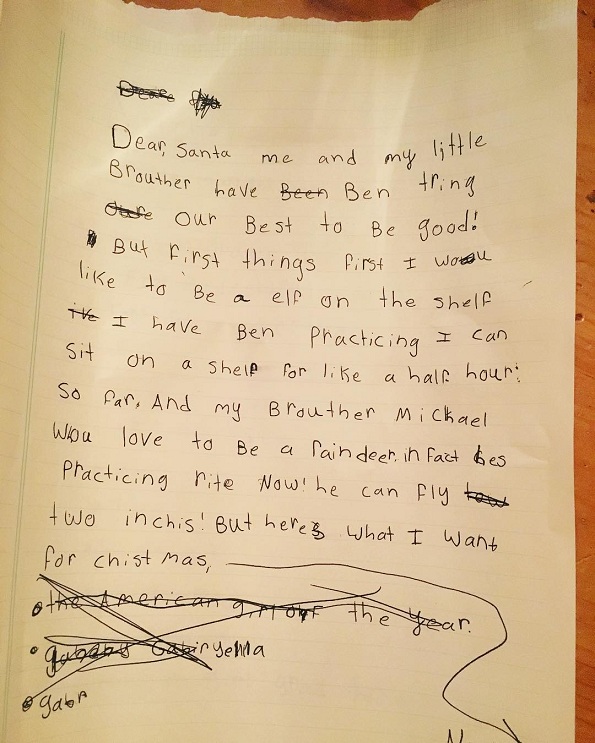 Dear, Santa me and my little
Brouther have Been Ben tring
our Best to Be good!
But first things first I wou
like to Be a elf on the shelf
I have Ben Practicing I can
sit on a shelf for like a half hour:
So far. And my Brouther Michael
Wou love to Be a raindeer. in fact hes
Practicing rite Now! he can fly
two inchis! But heres what I want
for christmas,
the American girl of the year.
Gabiryella
gabr
N